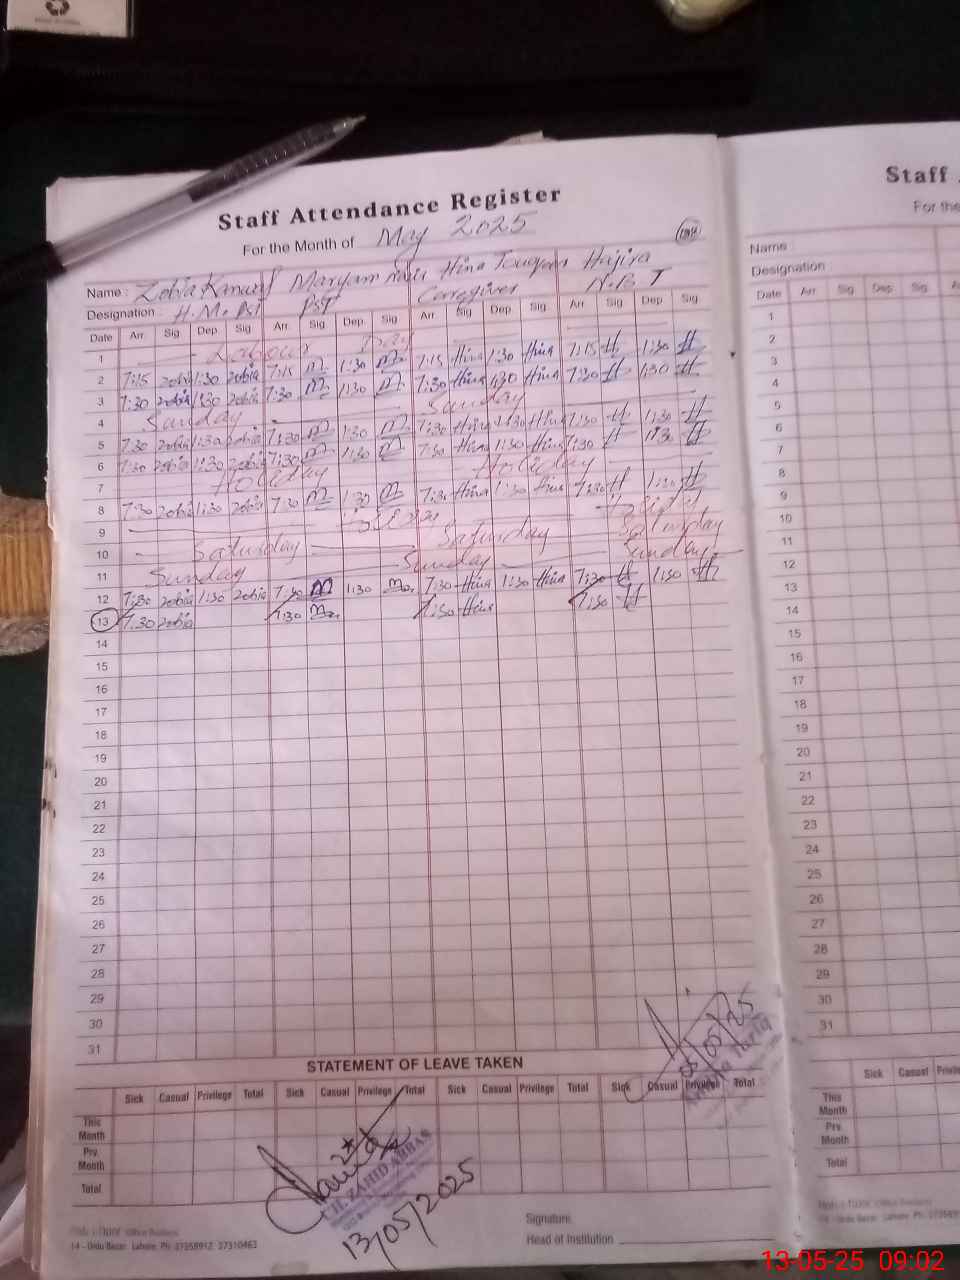 Staff Attendance Register
For the Month of May 2025
Name : Zobia Kanwal Maryam Hina Hajira
Designation : H.M. Pst Pst Caregiver N.B.T
Date Arr. Sig Dep. Sig Arr. Sig Dep. Sig Arr. Sig Dep. Sig Arr. Sig Dep. Sig
1 Labour Day
2 7:15 zobia 1:30 zobia 7:15 m 1:30 m 7:15 Hina 1:30 Hina 7:15 H 1:30 H
3 7:30 zobia 1:30 zobia 7:30 m 1:30 m 7:30 Hina 1:30 Hina 7:30 H 1:30 H
4 Sunday Sunday
5 7:30 zobia 1:30 zobia 7:30 m 1:30 m 7:30 Hina 1:30 Hina 7:30 H 1:30 H
6 7:30 zobia 1:30 zobia 7:30 m 1:30 m 7:30 Hina 1:30 Hina 7:30 H 1:30 H
7 Holiday Holiday
8 7:30 zobia 1:30 zobia 7:30 m 1:30 m 7:30 Hina 1:30 Hina 7:30 H 1:30 H
9 Holiday
10 Saturday Saturday Saturday
11 Sunday Sunday Sunday
12 7:30 zobia 1:30 zobia 7:30 m 1:30 m 7:30 Hina 1:30 Hina 7:30 H 1:30 H
13 7:30 zobia 7:30 m 7:30 Hina 7:30 H
14
15
16
17
18
19
20
21
22
23
24
25
26
27
28
29
30
31
STATEMENT OF LEAVE TAKEN
Sick Casual Privilege Total Sick Casual Privilege Total Sick Casual Privilege Total Sick Casual Privilege Total
This Month
Prv. Month
Total
05/05/25
CH. ZAHID ABBAS
13/05/2025
Signature
Head of Institution
14 - Urdu Bazar, Lahore. Ph: 37358912 37310463
Staff
For the
Name :
Designation :
Date Arr. Sig Dep. Sig
1
2
3
4
5
6
7
8
9
10
11
12
13
14
15
16
17
18
19
20
21
22
23
24
25
26
27
28
29
30
31
Sick Casual
This Month
Prv. Month
Total
13-05-25 09:02